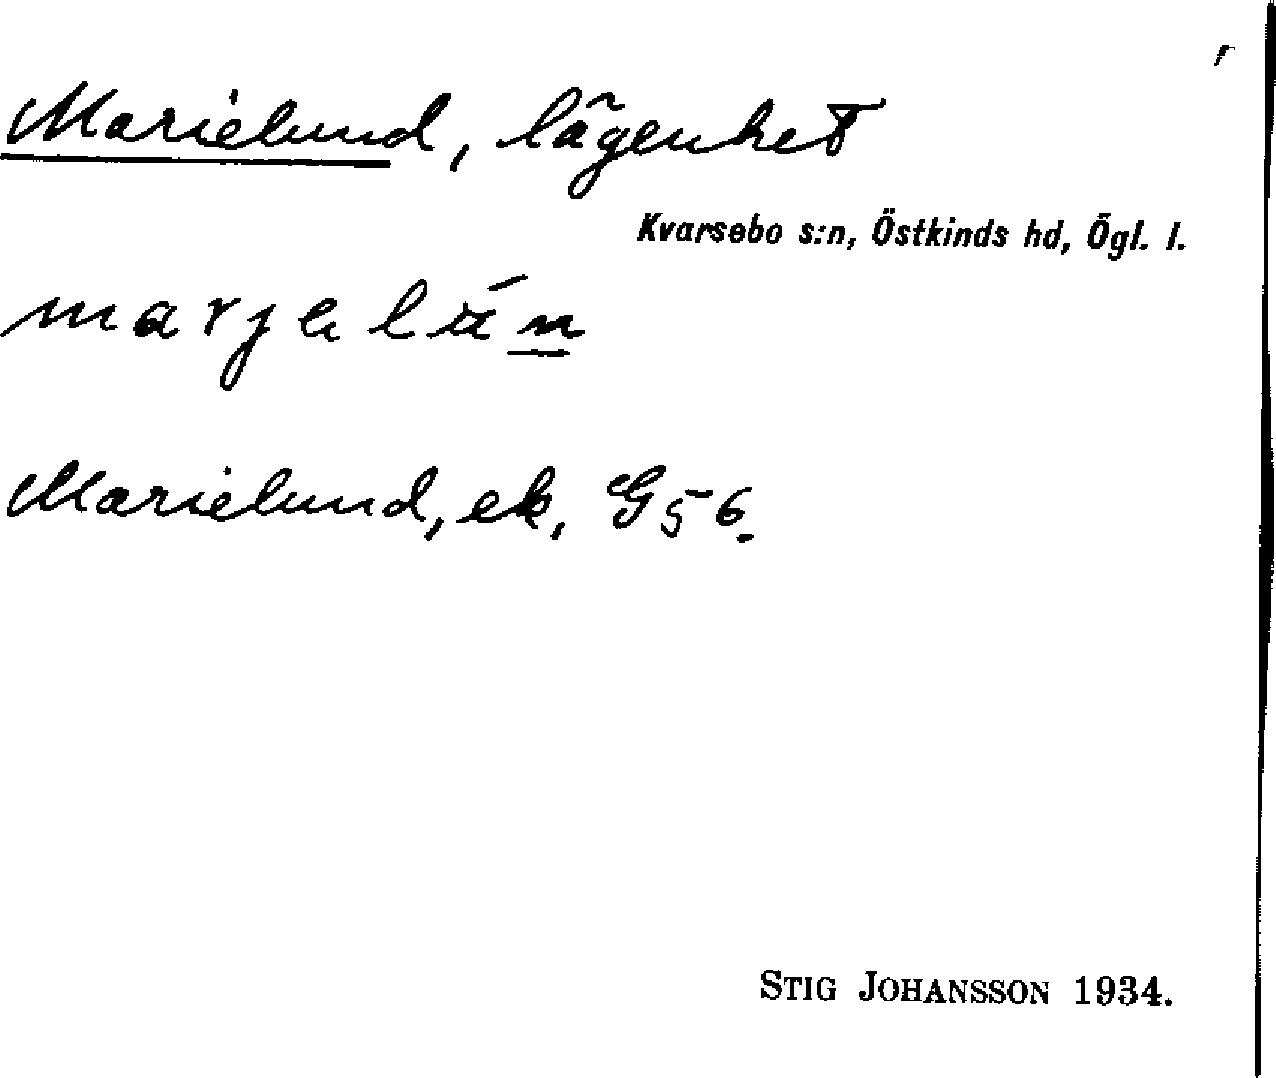 Marielund, lägenhet
Kvarsebo s:n, Östkinds hd, Ögl. l.
Marielund, ek, G 56.
STIG JOHANSSON 1934.